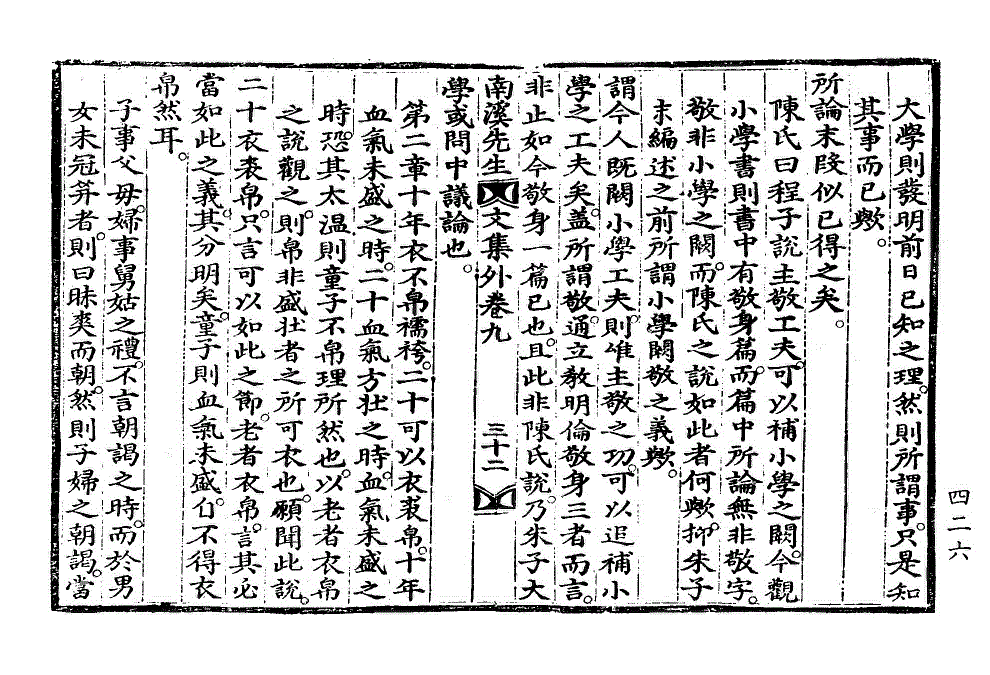 大學則發明前日已知之理。然則所謂事。只是知
其事而已歟。
所論末段似已得之矣。
陳氏曰程子說主敬工夫。可以補小學之闕。今觀
小學書則書中有敬身篇。而篇中所論無非敬字。
敬非小學之闕。而陳氏之說如此者何歟。抑朱子
未編述之前。所謂小學闕敬之義歟。
謂今人旣闕小學工夫。則惟主敬之功。可以追補小
學之工夫矣。盖所謂敬。通立敎明倫敬身三者而言。
非止如今敬身一篇已也。且此非陳氏說。乃朱子大
南溪先生文集外卷九 三十二
學或問中議論也。
第二章十年衣不帛襦袴。二十可以衣裘帛。十年
血氣未盛之時。二十血氣方壯之時。血氣未盛之
時。恐其太温則童子不帛理所然也。以老者衣帛
之說觀之。則帛非盛壯者之所可衣也。願聞此說。
二十衣裘帛。只言可以如此之節。老者衣帛。言其必
當如此之義。其分明矣。童子則血氣未盛。勿不得衣
帛然耳。
子事父母。婦事舅姑之禮。不言朝謁之時。而於男
女未冠笄者。則曰昧爽而朝。然則子婦之朝謁。當
四二六